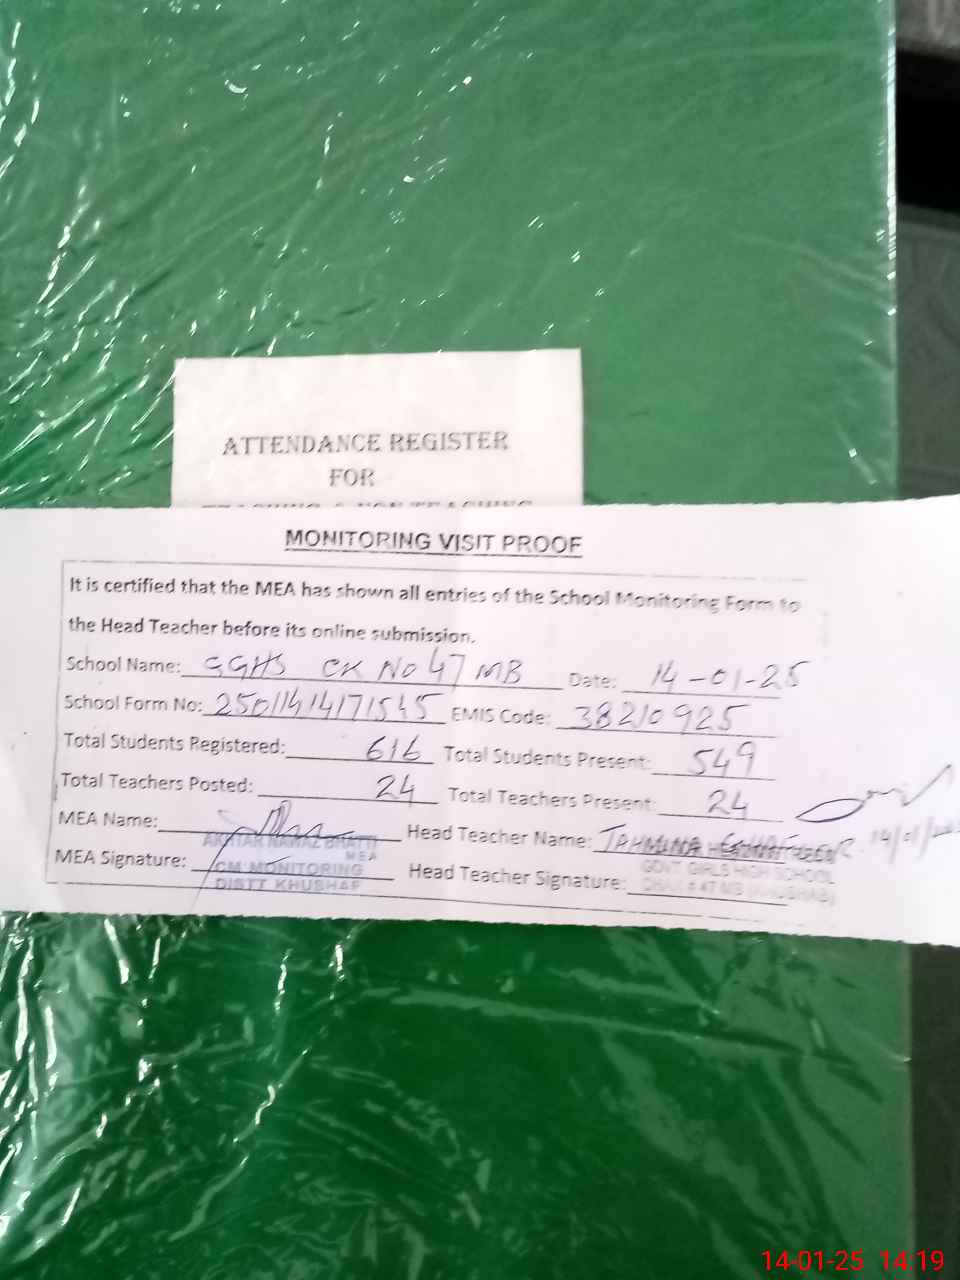 ATTENDANCE REGISTER
FOR
MONITORING VISIT PROOF
It is certified that the MEA has shown all entries of the School Monitoring Form to
the Head Teacher before its online submission.
School Name: GGHS CK No 47 MB Date: 14-01-25
School Form No: 25011414171545 EMIS Code: 38210925
Total Students Registered: 616 Total Students Present: 549
Total Teachers Posted: 24 Total Teachers Present: 24
MEA Name: Head Teacher Name: TAHMINA
AKHTAR NAWAZ BHATTI
MEA
MEA Signature: Head Teacher Signature:
CM MONITORING
DISTT KHUSHAB
GOVT GIRLS HIGH SCHOOL
CHAK # 47 MB (KHUSHAB)
14-01-25 14:19